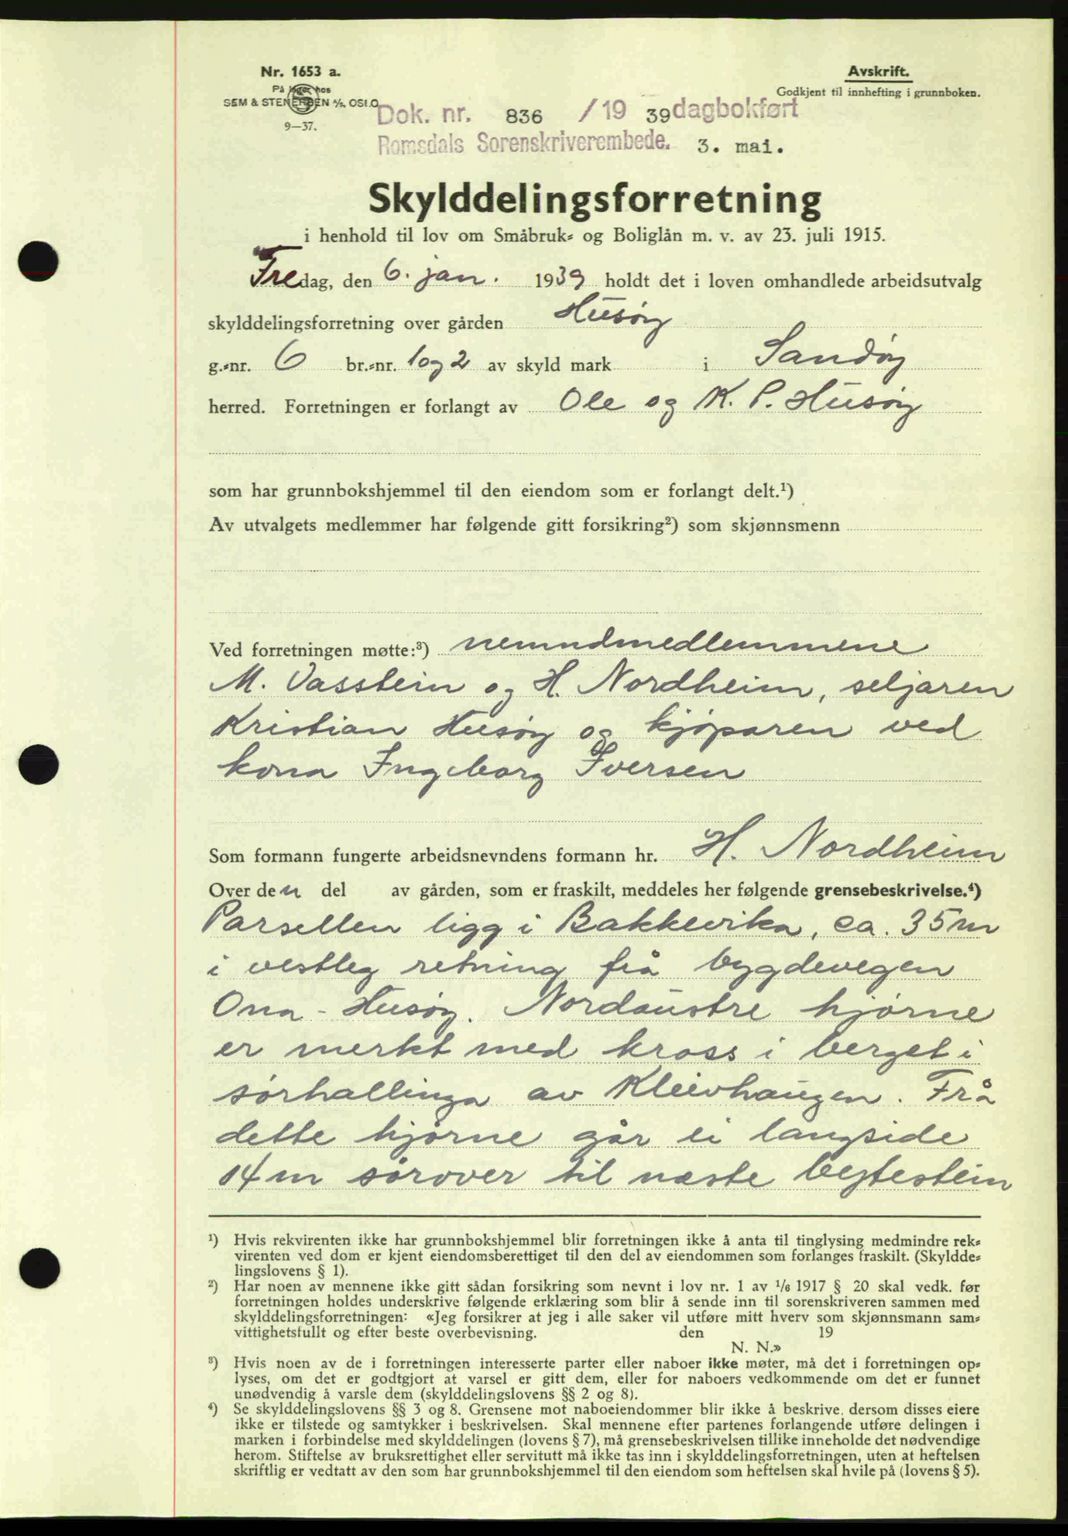 Nr. 1653 a.
På lager hos
SEM & STENERSEN A/S, OSLO
9—37.
Avskrift.
Godkjent til innhefting i grunnboken.
Dok. nr. 836 /19 39 dagbokført
Romsdals Sorenskriverembede. 3. mai.
Skylddelingsforretning
i henhold til lov om Småbruk- og Boliglån m. v. av 23. juli 1915.
Fredag, den 6. jan. 1939 holdt det i loven omhandlede arbeidsutvalg
skylddelingsforretning over gården Husøy
g.-nr. 6 br.-nr. 1 og 2 av skyld mark i Sandøy
herred. Forretningen er forlangt av Ole og K. P. Husøy
som har grunnbokshjemmel til den eiendom som er forlangt delt.¹)
Av utvalgets medlemmer har følgende gitt forsikring²) som skjønnsmenn
Ved forretningen møtte:³) nemndmedlemmene
M. Vasstein og H. Nordheim, seljaren
Kristian Husøy og kjøparen ved
kona Ingeborg Iversen
Som formann fungerte arbeidsnevndens formann hr. H. Nordheim
Over den del av gården, som er fraskilt, meddeles her følgende grensebeskrivelse.⁴)
Parsellen ligg i Bakkevika, ca. 35 m
i vestleg retning frå bygdevegen
Ona - Husøy. Nordaustre hjørne
er merkt med kross i berget i
sørhallinga av Kleivhaugen. Frå
dette hjørne går ei langside
14 m sørover til næste bytestein
¹) Hvis rekvirenten ikke har grunnbokshjemmel blir forretningen ikke å anta til tinglysing medmindre rek-
virenten ved dom er kjent eiendomsberettiget til den del av eiendommen som forlanges fraskilt. (Skyldde-
lingslovens § 1).
²) Har noen av mennene ikke gitt sådan forsikring som nevnt i lov nr. 1 av ¹/₆ 1917 § 20 skal vedk. før
forretningen holdes underskrive følgende erklæring som blir å sende inn til sorenskriveren sammen med
skylddelingsforretningen: «Jeg forsikrer at jeg i alle saker vil utføre mitt hverv som skjønnsmann sam-
vittighetsfullt og efter beste overbevisning. den 19
N. N.»
³) Hvis noen av de i forretningen interesserte parter eller naboer ikke møter, må det i forretningen op-
lyses, om det er godtgjort at varsel er gitt dem, eller for naboers vedkommende om det er funnet
unødvendig å varsle dem (skylddelingslovens §§ 2 og 8).
⁴) Se skylddelingslovens §§ 3 og 8. Grensene mot naboeiendommer blir ikke å beskrive, dersom disses eiere
ikke er tilstede og samtykker i beskrivelsen. Skal mennene efter partenes forlangende utføre delingen i
marken i forbindelse med skylddelingen (lovens § 7), må grensebeskrivelsen tillike inneholde det nødvendige
herom. Stiftelse av bruksrettighet eller servitutt må ikke tas inn i skylddelingsforretningen, uten at heftelsen
skriftlig er vedtatt av den som har grunnbokshjemmel til den eiendom som heftelsen skal hvile på (lovens § 5).